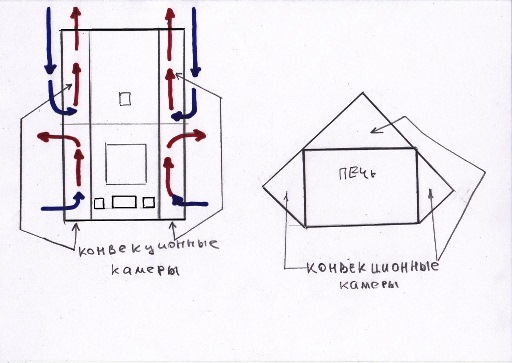 КОНВЕКЦИОННЫЕ
КАМЕРЫ
ПЕЧЬ
КОНВЕКЦИОННЫЕ
КАМЕРЫ